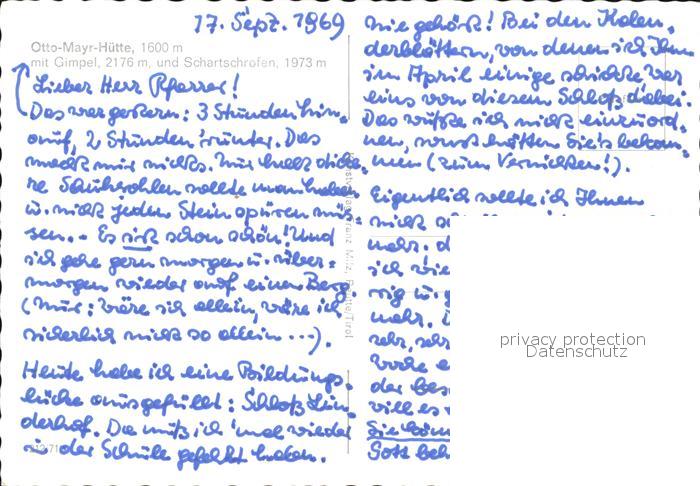 17. Sept. 1969
Otto-Mayr-Hütte, 1600 m
mit Gimpel, 2176 m, und Schartschrofen, 1973 m
Lieber Herr Pfarrer!
Das war gestern: 3 Stunden hin-
auf, 2 Stunden 'runter. Das
macht mir nichts. Nur halt dicke-
re Schuhsohlen sollte man haben
u. nicht jeden Stein spüren müs-
sen. - Es ist schon schön! Und
ich gehe gern morgen u. über-
morgen wieder auf einen Berg.
(Nur: wäre ich allein, wäre ich
sicherlich nicht so allein ...).
Heute habe ich eine Bildungs-
lücke ausgefüllt: Schloß Lin-
derhof. Da muß ich 'mal wieder
in der Schule gefehlt haben.
Franz Milz, Reutte/Tirol
nie gehört! Bei den Kalen-
derblättern, von denen ich Ihnen
im April einige schickte war
eins von diesem Schloß dabei.
Das wußte ich nicht einzuord-
nen, sonst hätten Sie's bekom-
men (zum Vernichten!).
Eigentlich sollte ich Ihnen
nicht
mehr. d
ich wie
rig u. g
mehr.
sehr, seh
Woche e
der bes
will es
Sie kön
Gott beh
privacy protection
Datenschutz